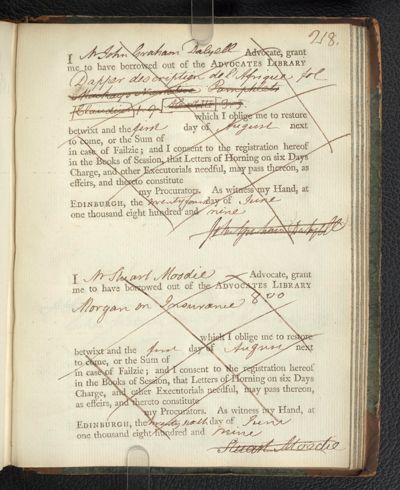 218.
I Mr John Graham Dalyell Advocate, grant
me to have borrowed out of the ADVOCATES LIBRARY
Dapper description de l'Afrique fol
Pamphlets
Claudius
which I oblige me to restore
betwixt and the first day of August next
to come, or the Sum of
in case of Failzie; and I consent to the registration hereof
in the Books of Session, that Letters of Horning on six Days
Charge, and other Executorials needful, may pass thereon, as
effeirs, and thereto constitute
my Procurators. As witness my Hand, at
EDINBURGH, the day of June
one thousand eight hundred and nine
John Graham Dalyell
I Mr Stuart Moodie Advocate, grant
me to have borrowed out of the ADVOCATES LIBRARY
Morgan on Insurance 8vo
which I oblige me to restore
betwixt and the first day of August next
to come, or the Sum of
in case of Failzie; and I consent to the registration hereof
in the Books of Session, that Letters of Horning on six Days
Charge, and other Executorials needful, may pass thereon,
as effeirs, and thereto constitute
my Procurators. As witness my Hand, at
EDINBURGH, the day of June
one thousand eight hundred and nine
Stuart Moodie